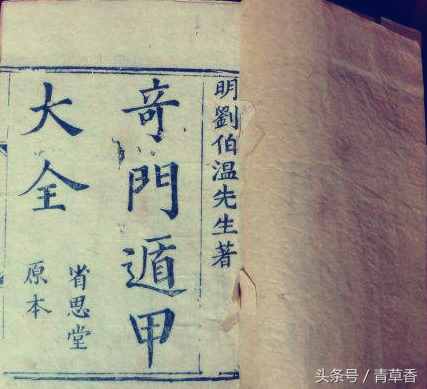 明劉伯溫先生著
奇門遁甲
大全
省思堂
原本
头条号 / 青草香